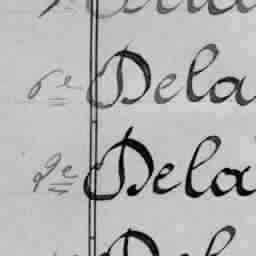 6e Dela
2e Dela